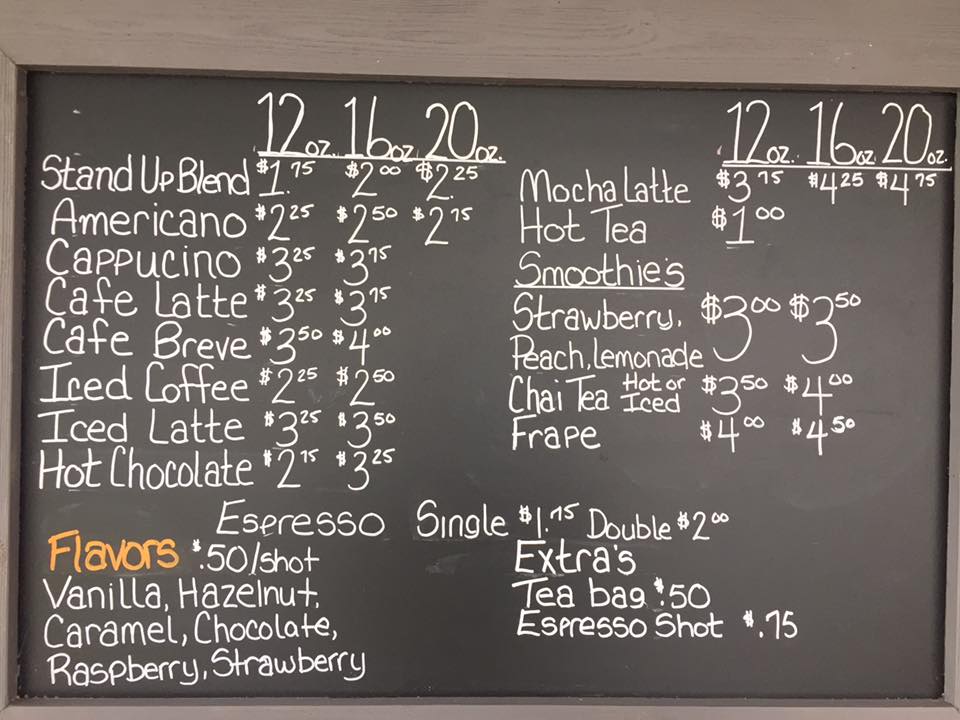 12oz. 16oz 20oz.
Stand Up Blend $1.75 $2.00 $2.25
Americano $2.25 $2.50 $2.75
Cappucino $3.25 $3.75
Cafe Latte $3.25 $3.75
Cafe Breve $3.50 $4.00
Iced Coffee $2.25 $2.50
Iced Latte $3.25 $3.50
Hot Chocolate $2.75 $3.25
12oz. 16oz. 20oz.
Mocha Latte $3.75 $4.25 $4.75
Hot Tea $1.00
Smoothie's
Strawberry, $3.00 $3.50
Peach, Lemonade
Chai Tea Hot or Iced $3.50 $4.00
Frape $4.00 $4.50
Espresso Single $1.75 Double $2.00
Flavors $.50/shot
Vanilla, Hazelnut,
Caramel, Chocolate,
Raspberry, Strawberry
Extra's
Tea bag $.50
Espresso Shot $.75